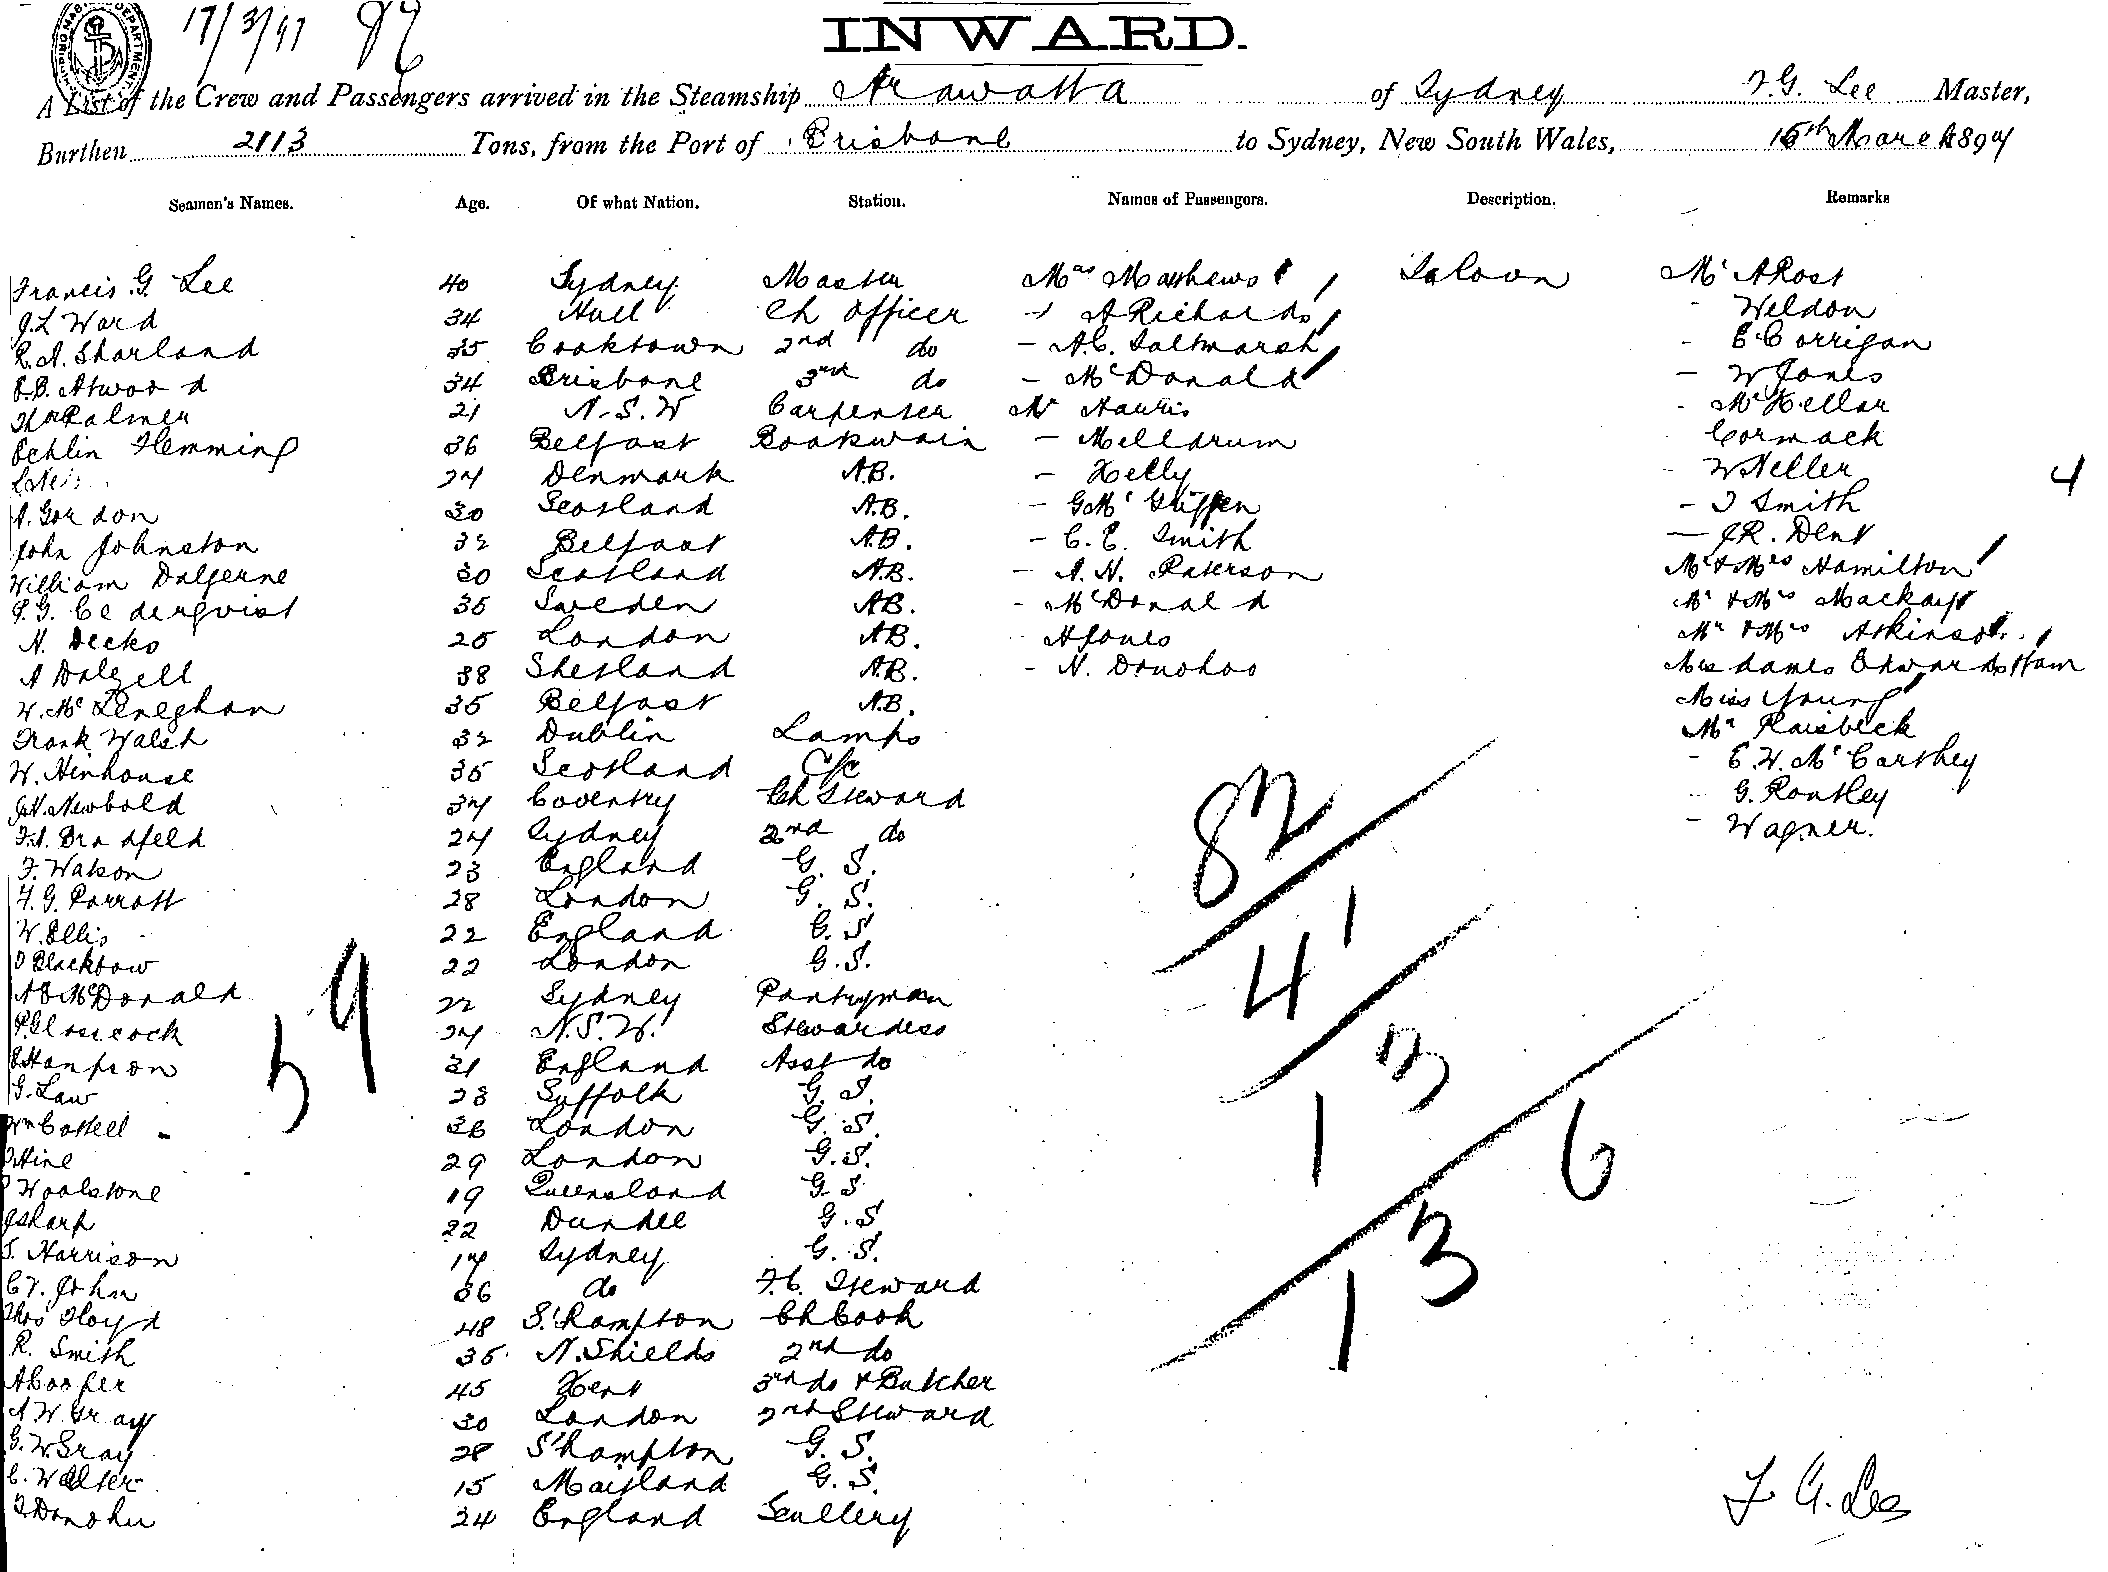 17/3/97
INWARD.
A List of the Crew and Passengers arrived in the Steamship Arawatta of Sydney F.G. Lee Master,
Burthen 2113 Tons, from the Port of Brisbane to Sydney, New South Wales, 15th March 1897
Seamen's Names. Age. Of what Nation. Station. Names of Passengers. Description. Remarks
Francis G. Lee 40 Sydney Master Mrs Mathews Saloon Mr A Rost
J.L Ward 34 Hull Ch Officer - A Richards - Weldon
R. A. Sharland 35 Cooktown 2nd do - A.C. Saltmarsh - E Corrigan
E.B. Atwood 34 Brisbane 3rd do - McDonald - W Jones
Wm Palmer 21 N.S.W Carpenter Mr Harris - McKellar
Echlin Flemming 36 Belfast Boatswain - Melldrum Cormack
24 Denmark A.B. - Kelly - W Heller 4
A. Gordon 30 Scotland A.B. - G Mc Giffen - T Smith
John Johnston 32 Belfast A.B. - C. E. Smith - J R. Dent
William Dalgerne 30 Scotland A.B. - A. H. Paterson Mr & Mrs Hamilton
P. G. Cederqvist 35 Sweden AB. - McDonald Mr & Mrs Mackay
H. Decks 25 London AB. H Jones Mr & Mrs Atkinson
A Dalzell 38 Shetland A.B. - N. Donohoo Mesdames Edwards Ham
W. Mc Leneghan 35 Belfast A.B. Miss Young
Frank Walsh 32 Dublin Lamps Mr Raisbeck
W. Hinhouse 35 Scotland - E.W. McCarthey
J.H. Newbold 34 Coventry Ch Steward - G. Rontley
F.A. Bradfeld 24 Sydney 2nd do - Wagner.
F. Watson 23 England G. S. 82
F. G. Parrott 28 London G. S.
W. Ellis 22 England G. S 41
Blackbow 22 London G.S.
A E McDonald 22 Sydney Pantryman
P. Glasscock 24 N.S.W. Stewardess 59
E Hampson 31 England Asst do 13
G. Law 23 Suffolk G. S.
Wm Cottell 36 London G. S. 6
Hine 29 London G.S.
Woolstone 19 Queensland G. S
J Sharp 22 Dundee G. S 13
S. Harrison 17 Sydney G. S.
C F. John 36 do F.C. Steward
Thos Floyd 48 S.Hampton Ch Cook
R. Smith 35 N. Shields 2nd do
A Cooper 45 Kent 3rd do & Butcher
A W Gray 30 London 2nd Steward
G. W Gray 28 S'hampton G. S.
C. Walter 15 Maitland G. S.
Donohu 24 England Scullery
F G. Lee